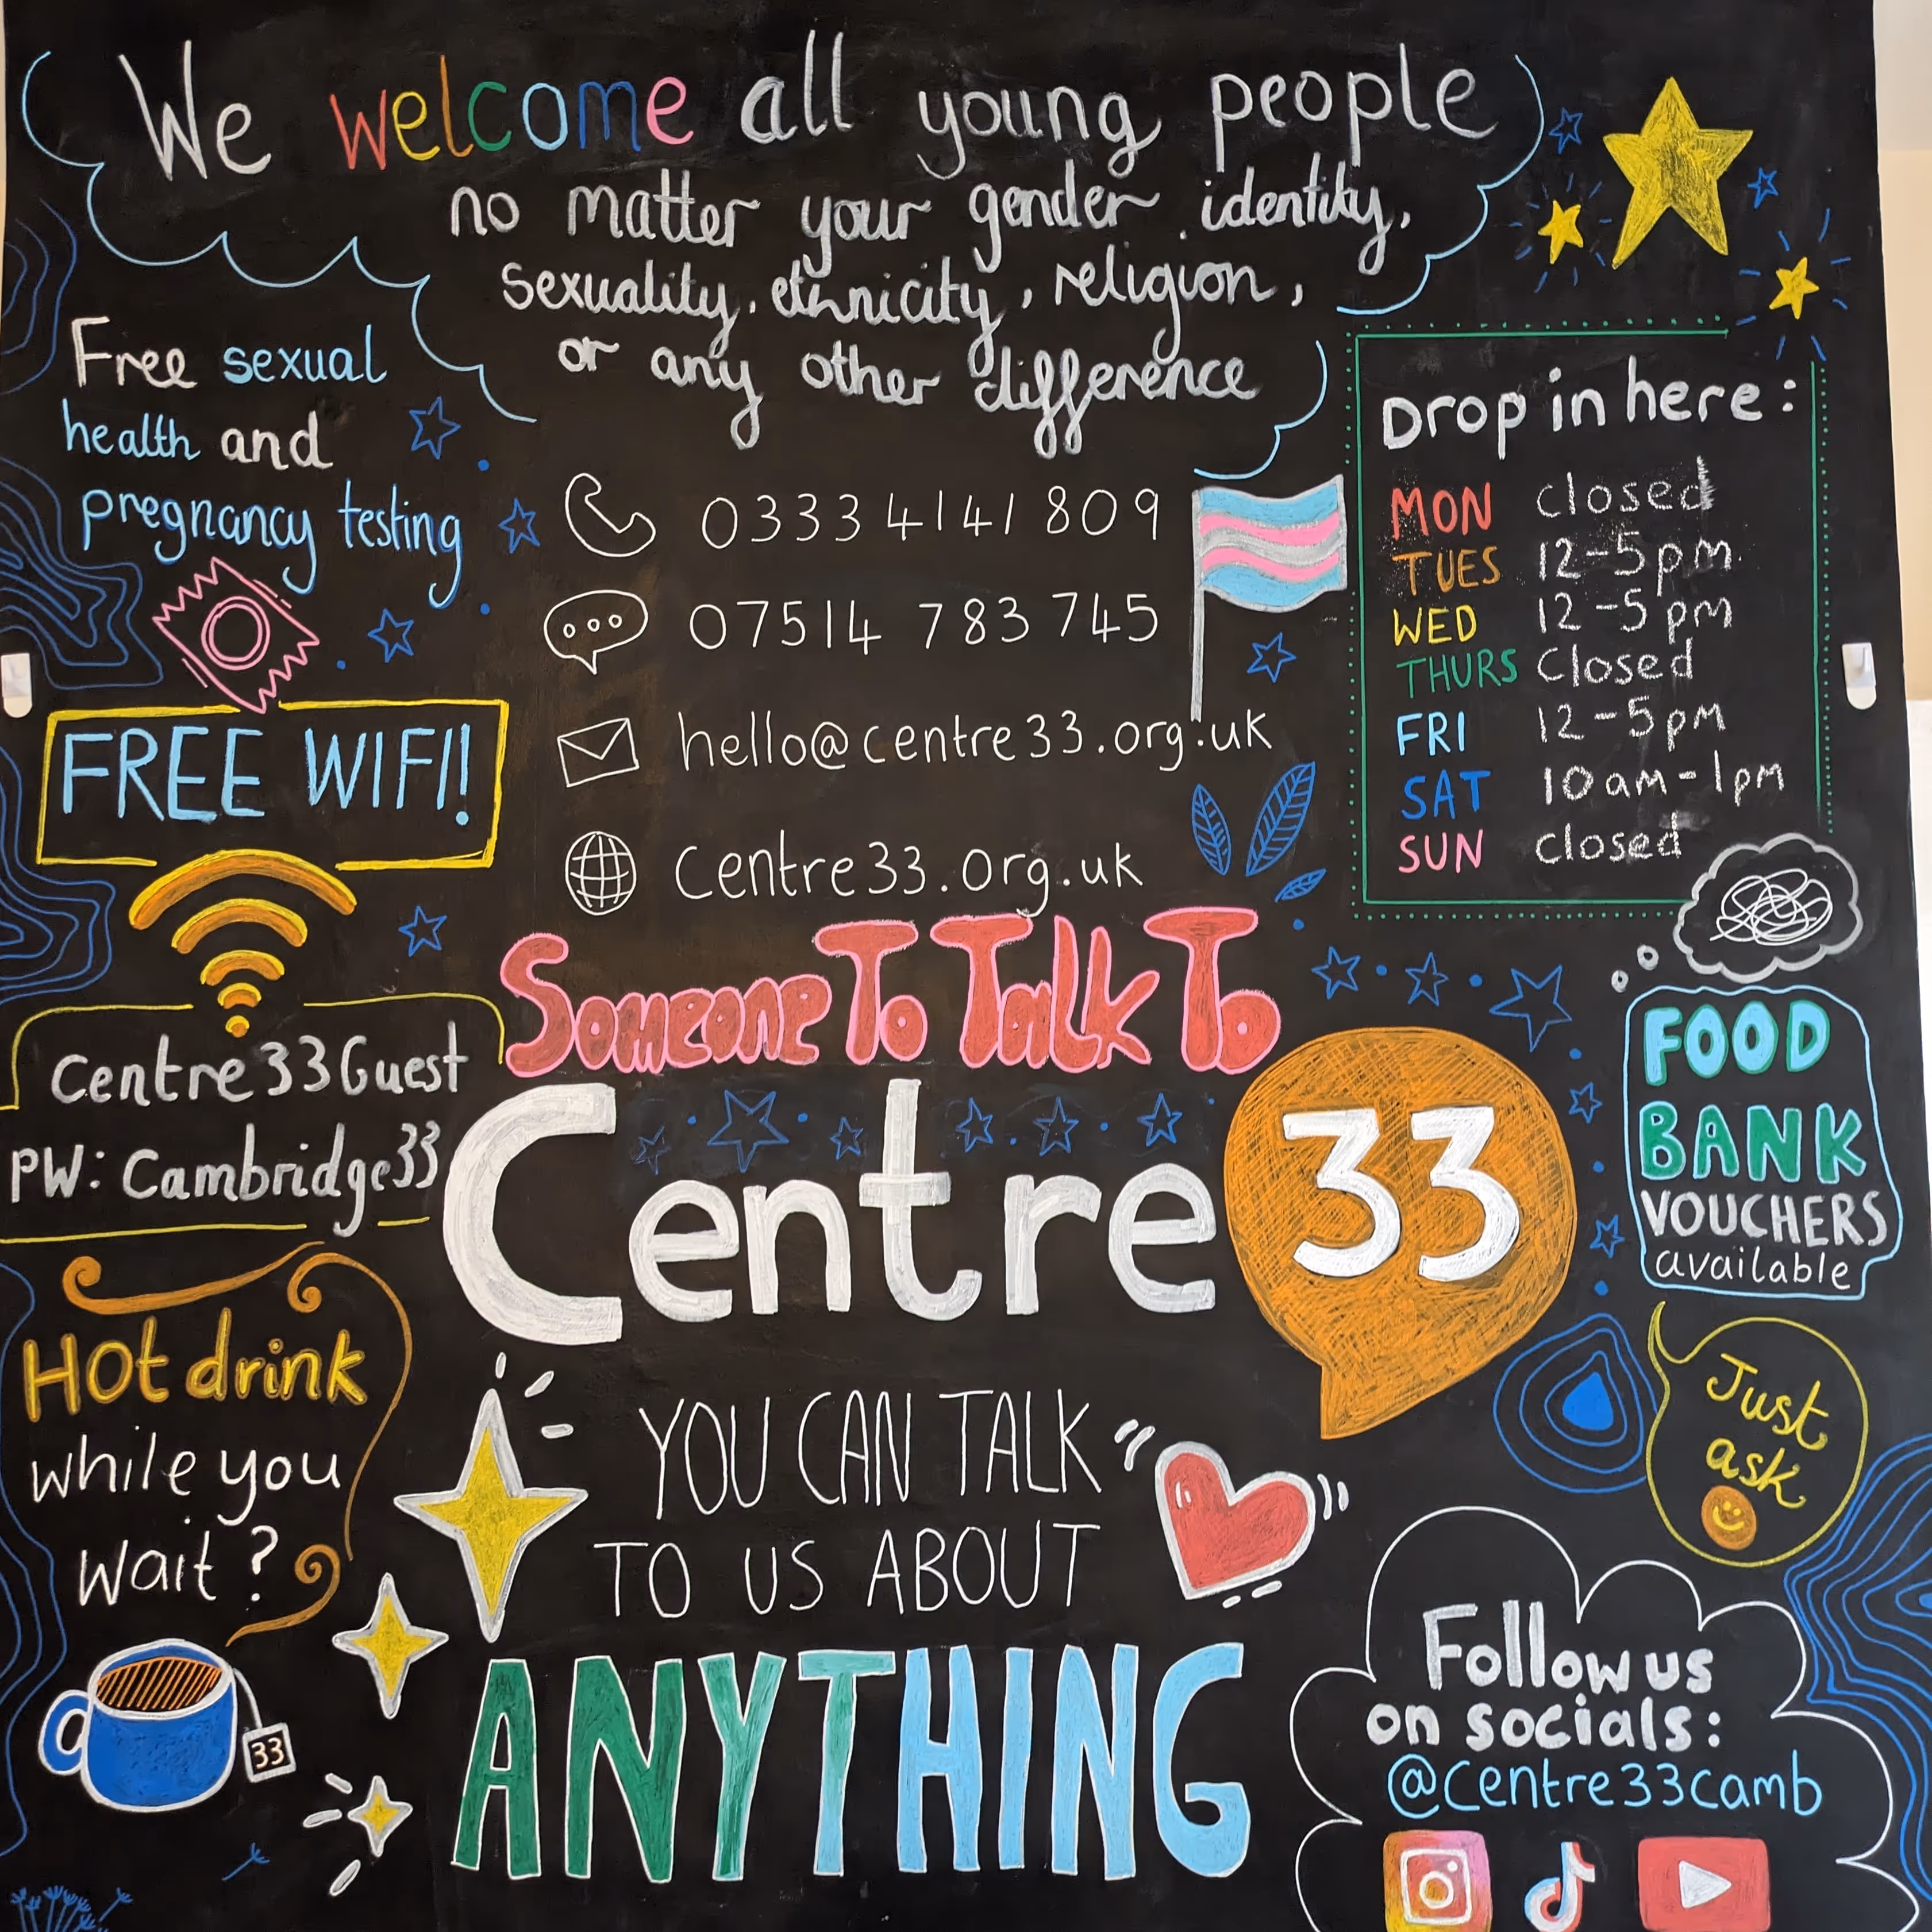 We welcome all young people
no matter your gender identity,
sexuality, ethnicity, religion,
or any other difference
Free sexual
health and
pregnancy testing
0333 4141 809
07514 783 745
hello@centre33.org.uk
centre33.org.uk
Drop in here:
MON closed
TUES 12-5pm
WED 12-5pm
THURS Closed
FRI 12-5pm
SAT 10am-1pm
SUN closed
FREE WIFI!
Centre33Guest
PW: Cambridge33
Someone To Talk To
Centre 33
FOOD
BANK
VOUCHERS
available
Just
ask
Hot drink
while you
wait?
33
YOU CAN TALK
TO US ABOUT
ANYTHING
Follow us
on socials:
@Centre33camb